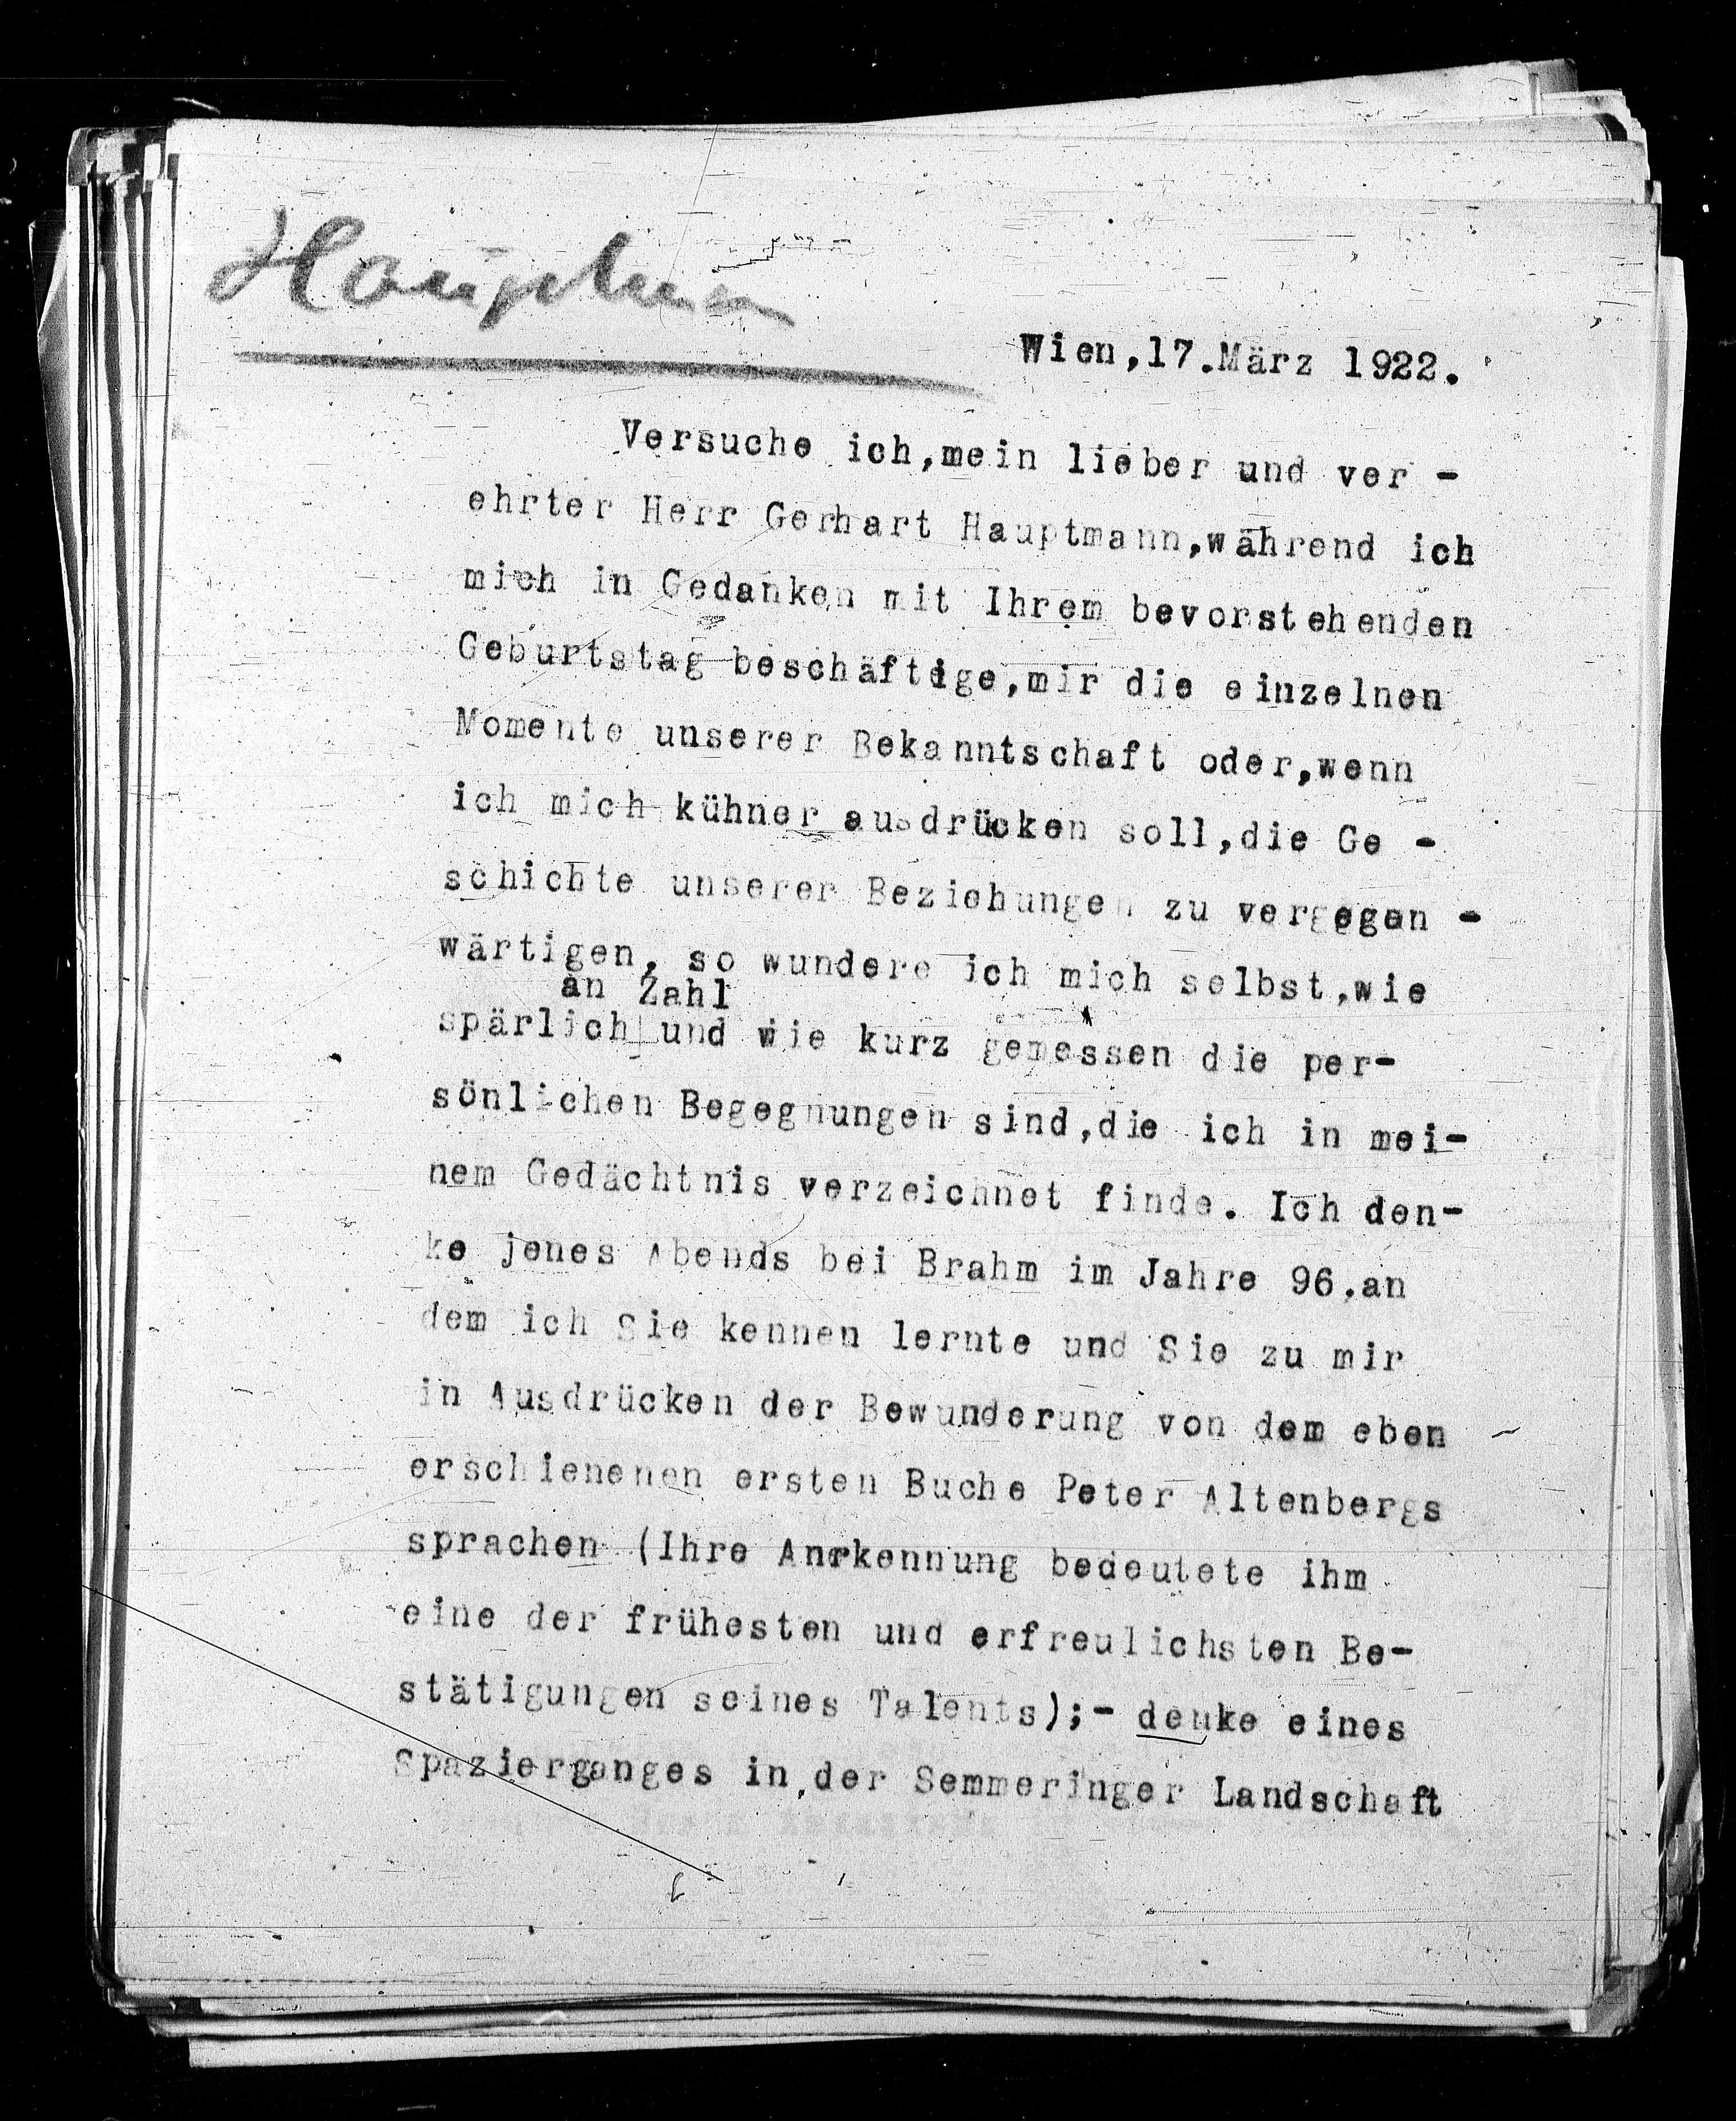 Hauptmann
Wien,17.März 1922.
Versuche ich,mein lieber und ver -
ehrter Herr Gerhart Hauptmann,während ich
mich in Gedanken mit Ihrem bevorstehenden
Geburtstag beschäftige,mir die einzelnen
Momente unserer Bekanntschaft oder,wenn
ich mich kühner ausdrücken soll,die Ge -
schichte unserer Beziehungen zu vergegen -
wärtigen, so wundere ich mich selbst,wie
an Zahl
spärlich und wie kurz gemessen die per-
sönlichen Begegnungen sind,die ich in mei-
nem Gedächtnis verzeichnet finde. Ich den-
ke jenes Abends bei Brahm im Jahre 96.an
dem ich Sie kennen lernte und Sie zu mir
in Ausdrücken der Bewunderung von dem eben
erschienenen ersten Buche Peter Altenbergs
sprachen (Ihre Anrkennung bedeutete ihm
eine der frühesten und erfreulichsten Be-
stätigungen seines Talents);- denke eines
Spazierganges in der Semmeringer Landschaft